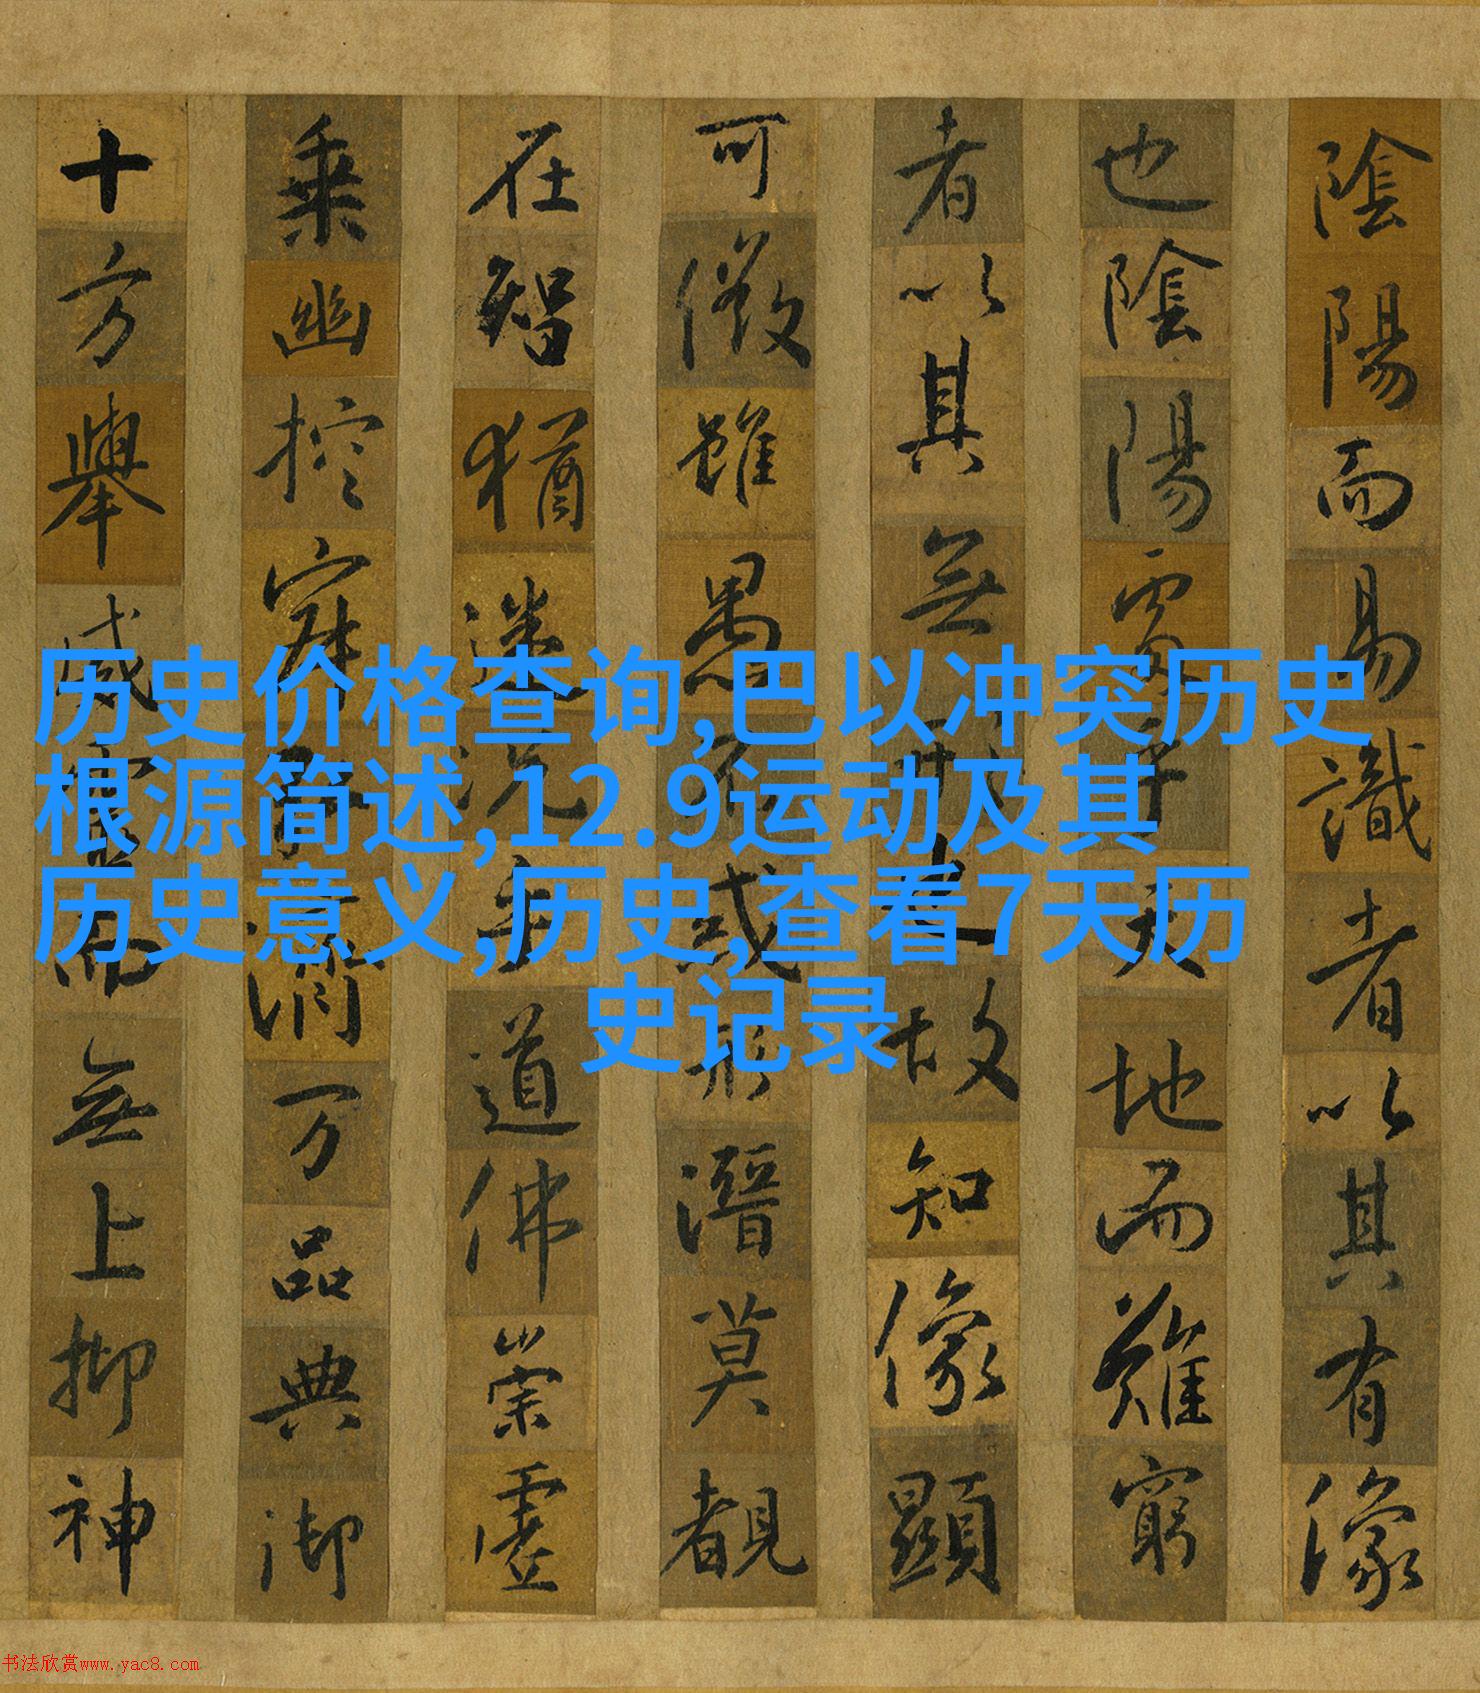 陰陽而易識者以其有像
也陰陽處乎天地而難窮
者以其無形也故知像顯
可徵雖愚不惑形潛莫覩
在智猶迷況乎道佛崇虛
乘幽控寂弘濟万品典御
十方舉威靈而無上抑神
历史价格查询,巴以冲突历史
根源简述,12.9运动及其
历史意义,历史,查看7天历
史记录
书法欣赏www.yac8.com